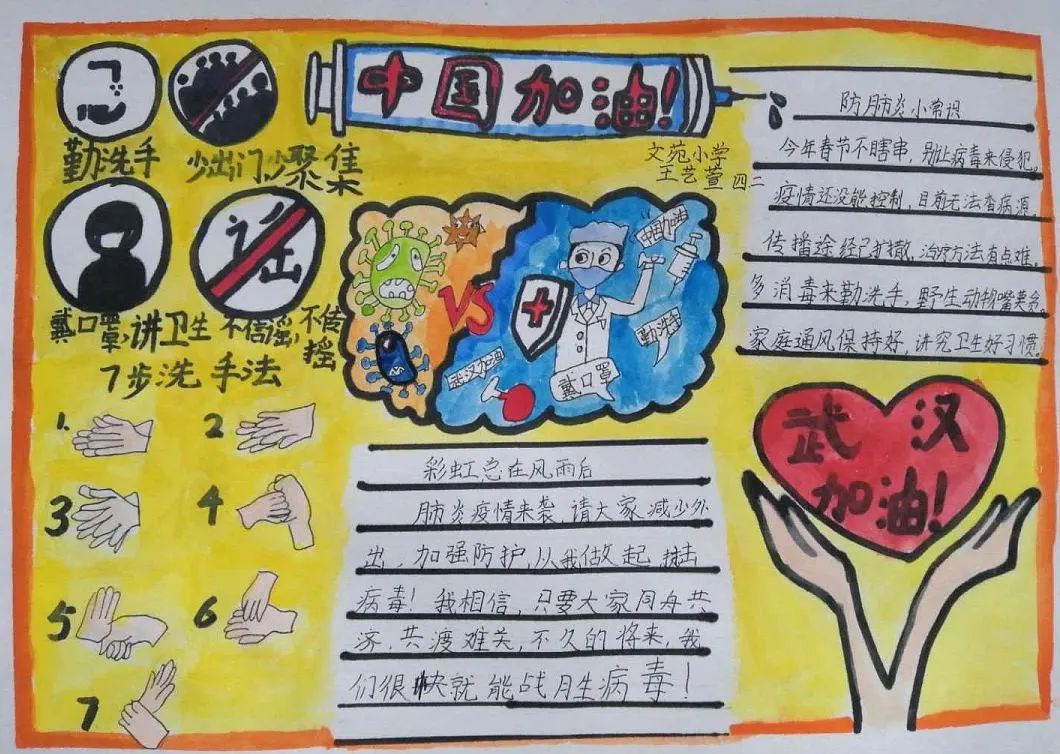 中国加油!
文苑小学
王艺萱 四二
勤洗手
少出门,少聚集
戴口罩,讲卫生
不信谣,不传
摇
谣
7步洗手法
1.
2
3
4
5
6
7
VS
中国加油
勤洗手
武汉加油
戴口罩
防肺炎小常识
今年春节不瞎串,别让病毒来侵犯。
疫情还没能控制,目前无法查病源,
传播途经已扩撒,治疗方法有点难。
多消毒来勤洗手,野生动物嘴莫贪,
家庭通风保持好,讲究卫生好习惯
彩虹总在风雨后
肺炎疫情来袭,请大家减少外
出,加强防护,从我做起,
病毒!我相信,只要大家同舟共
济,共渡难关,不久的将来,我
们很快就能战胜病毒!
武汉
加油!